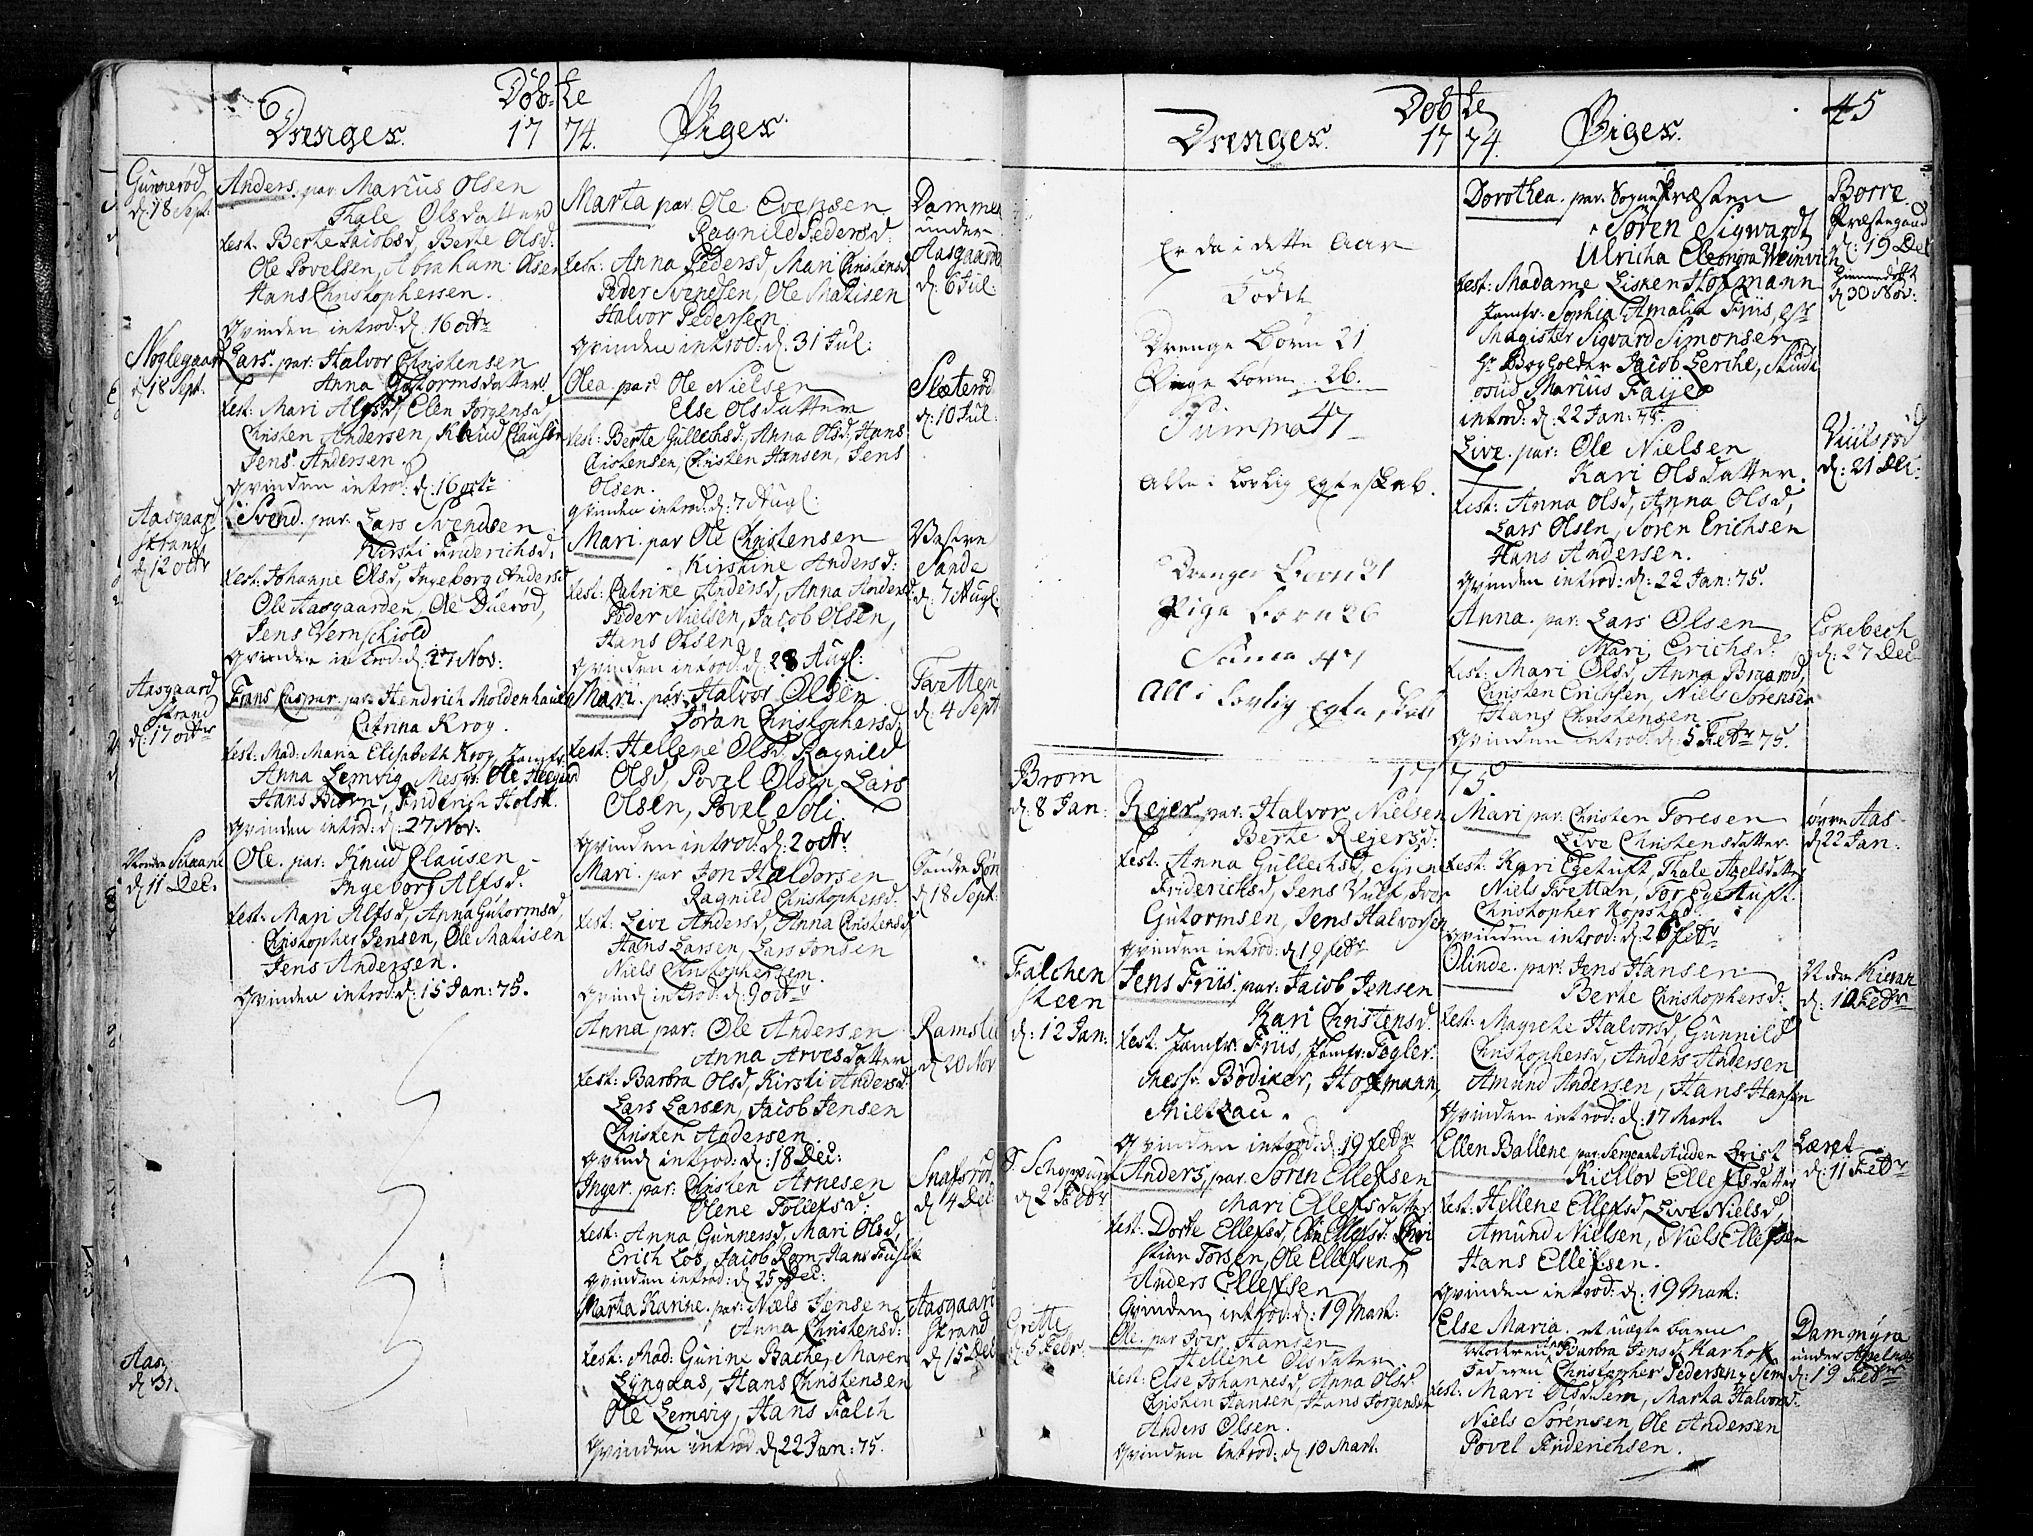 Døb-te
Drenge. 1774. Piger.
Gunnerød
d: 18 Sept:
Anders. par: Marius Olsen
Thale Olsdatter
test: Berte Jacobsd, Berte Olsd:
Ole Povelsen, Abraham Olsen
Hans Christophersen.
Qvinden introd: d: 16 octr
Noglegaard
d: 18 Sept.
Lars. par: Halvor Christensen
Anna Gutormsdatter
test: Mari Alfsd, Elen Jorgensd,
Christen Andersen, Knud Clausen
Jens Andersen.
Qvinden introd: d: 16 octr
Aasgaard
strand
d: 12 octr
Svend. par: Lars Svendsen
Kirsti Friderichsd:
test: Johanne Olsd, Ingeborg Andersd
Ole Aasgaarden, Ole Duerød,
Jens Wernschiold
Qvinden introd: d: 27 Nov:
Aasgaard
strand
d: 17 octr
Frans Caspar. par: Hendrich Moldenhauer
Catrina Krog.
test: Mad: Maria Elisabeth Krog, Jomfr:
Anna Lemvig, Mesr: Ole Heegard
Hans Biørn, Friderich Holst.
Qvinden introd: d: 27 Nov:
d: 11 Dec.
Ole. par: Knud Clausen
Ingebor Alfsd.
test: Mari Alfsd, Anna Gutormsd,
Christopher Jensen, Ole Matisen
Jens Andersen.
Qvinden introd: d: 15 Jan: 75.
d: 31
Marta par Ole Evensen
Ragnild Pedersd:
test: Anna Pedersd, Mari Christensd
Peder Svendsen, Ole Matisen
Halvor Pedersen
Qvinden introd: d: 31 Jul:
Dammen
under
Aasgaard
d: 6 Jul:
Olea. par: Ole Nielsen
Else Olsdatter
test: Berte Gullechsd, Anna Olsd, Hans
Christensen, Christen Hansen, Jens
Olsen.
Qvinden introd: d: 7 Augl:
Sletterød
d: 10 Jul:
Mari. par Ole Christensen
Kirstine Andersd:
test: Catrine Andersd, Anna Andersd:
Peder Nielsen, Jacob Olsen,
Hans Olsen.
Qvinden introd: d: 28 Augl:
Vestre
Sande
d: 7 Augl:
Mari. par: Halvor Olsen
Jøran Christophersd:
test: Hellene Olsd, Ragnild
Olsd, Povel Olsen, Lars
Olsen, Povel Soli
Qvinden introd: d: 2 octr
Tvetten
d: 4 Sept
Mari. par Jon Haldorsen
Ragnild Christophersd:
test: Live Andersd, Anna Christensd,
Hans Larsen, Lars Jonsen
Niels Christophersen.
Qvind introd: d: 9 octr
Søndre Rør
d: 18 Sept:
Anna par: Ole Andersen
Anna Arvesdatter
test: Barbra Olsd, Kirsti Andersd:
Lars Larsen, Jacob Jensen
Christen Andersen.
Qvind introd: d: 18 Dec:
Ramslie
d: 20 Nov
Inger. par: Christen Arnesen
Olene Tollefsd:
test: Anna Gunnersd, Mari Olsd,
Erich Lob, Jacob Rom, Hans
Qvinden introd: d: 25 Dec:
Snatsrød
d: 4 Dec
Marta Karine. par: Niels Jensen
Anna Christensd:
test: Mad: Gurine Bache, Maren
Lyngaas, Hans Christensen
Ole Lemvig, Hans Falch
Qvinden introd d: 22 Jan: 75.
Aasgaard
Strand
d: 15 Dec
Døbte 45
Drenge. 1774. Piger.
Er da i dette Aar
Fødte
Drenge Børn 21
Pige børn 26.
Summa 47
Alle i lovlig Egteskab.
Drenge Børn 21
Pige børn 26
Suma 47
All i lovlig Egteskab
Dorothea. par: Sogne Præsten
Søren Sigwardt
Ulricha Eleonora Weinvich
test: Madame Lisken Hofmann
Jomfr: Sophia Amalia Friis,
Magister Sigvard Simonsen
Hr Bogholder Jacob Lerche, Stud:
Marius Faye
introd: d: 22 Jan: 75.
Borre
Præstegaard
d: 19 Dec
hiemmedøbt
d: 30 Nov:
Live. par: Ole Nielsen
Kari Olsdatter.
test: Anna Olsd, Anna Olsd,
Lars Olsen, Søren Erichsen
Hans Andersen.
Qvinden introd: d: 22 Jan: 75.
d: 21 Dec:
Anna. par: Lars Olsen
Mari Erichsd:
test: Mari Olsd, Anna Braarød,
Christen Erichsen, Niels Sørensen
Hans Christensen
Qvinden introd: d: 5 Febr 75.
Eskebech
d: 27 Dec
1775
Brom
d: 8 Jan:
Rejer. par: Halvor Nielsen
Berte Rejersd:
test: Anna Gullechsd,
Friderichsd, Jens Vulf, Iver
Gutormsen, Jens Halvorsen
Qvinden introd: d: 19 febr
Falchen
steen
d: 12 Jan:
Jens Friis. par: Jacob Jensen
Kari Christensd.
test: Jomfr: Friis, Jomfr: Fogler.
Messr: Bødiker, Hofmann,
Mieltzau.
Qvinden introd: d: 19 febr
d: 2 Febr
Anders, par: Søren Ellefsen
Mari Ellefsdatter
test: Dorte Ellefsd, Ellefsd: Chri
stian Torsen, Ole Ellefsen,
Anders Ellefsen
Qvinden introd: d: 19 Mart:
Grette
d: 5 Febr.
Ole. par Iver Hansen
Hellene Olsdatter
test: Else Johannesd, Anna Olsd
Christen Hansen, Hans Jorgensen
Anders Olsen.
Qvinden introd: d: 10 Mart.
Mari par: Christen Foresen
Live Christensdatter
test: Kari Egetuft, Thale Axelsdatter
Niels Tvetten, Tor Egetuft.
Christopher Kopstad.
Qvinden introd: d: 26 febr
øvre Aas
d: 22 Jan:
Olinde. par: Jens Hansen
Berte Christophersd:
test: Magrete Halvorsd, Gunnild
Christophersd, Anders Andersen
Amund Andersen, Hans Hansen
Qvinden introd: d: 17 Mart
d: 10 Febr
Ellen Ballene par: Sergeant Auden
Kiellov Ellefsdatter
test: Hellene Ellefsd, Live Nielsd,
Amund Nielsen, Niels Ellefsen
Hans Ellefsen.
Qvinden introd: d: 19 Mart:
Læret
d: 11 Febr
Else Maria. et uægte barn
Moderen Barbra Jensd Karhof
Faderen Christopher Pedersen, Sem
test: Mari Olsd Sem, Marta Halvorsd.
Niels Sørensen, Ole Andersen
Povel Friderichsen.
Dammyra
under
d: 19 Febr